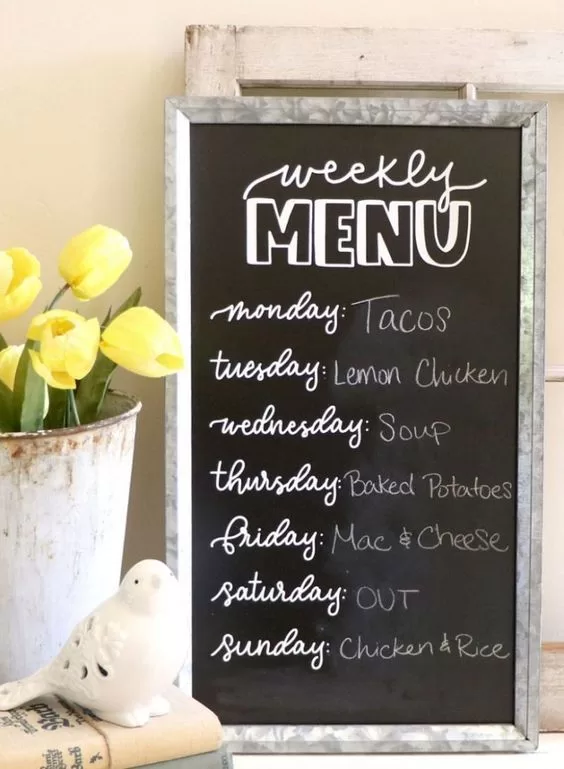 weekly
MENU
monday: Tacos
tuesday: Lemon Chicken
wednesday: Soup
thursday: Baked Potatoes
friday: Mac & Cheese
saturday: OUT
sunday: Chicken & Rice